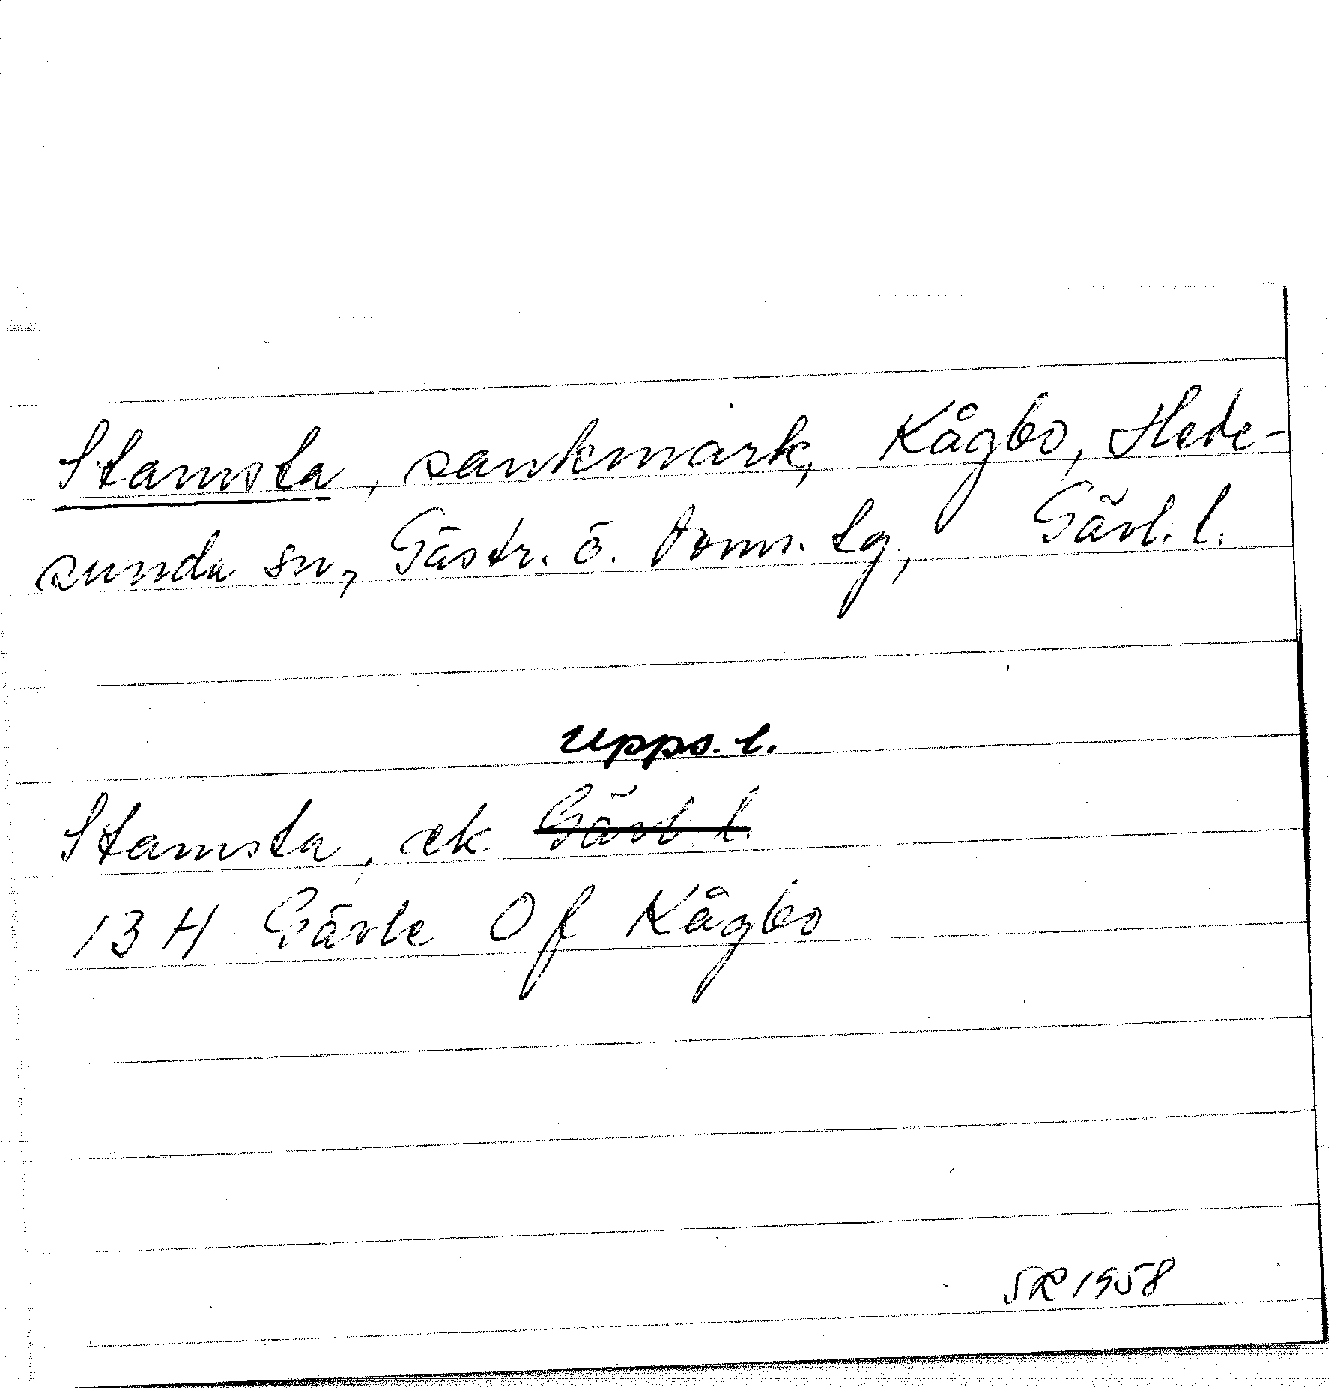 Stamsta, sankmark, Kågbo, Hede-
sunda sn, Gästr. ö. doms. tg, Gävl. l.
Upps. l.
Stamsta, ek Gävl l.
13 H Gävle 0 f Kågbo
SR 1958